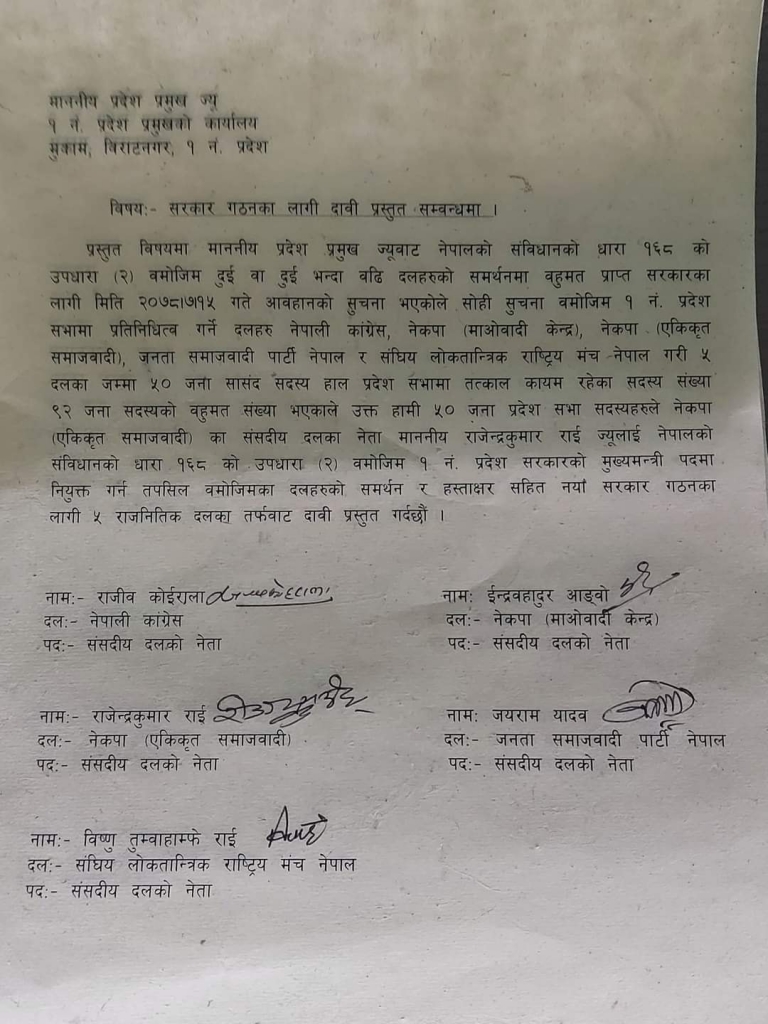 माननीय प्रदेश प्रमुख ज्यू
१ नं. प्रदेश प्रमुखको कार्यालय
मुकाम, विराटनगर, १ नं. प्रदेश
विषय:- सरकार गठनका लागी दावी प्रस्तुत सम्वन्धमा ।
प्रस्तुत विषयमा माननीय प्रदेश प्रमुख ज्यूवाट नेपालको संविधानको धारा १६८ को
उपधारा (२) वमोजिम दुई वा दुई भन्दा वढि दलहरुको समर्थनमा वहुमत प्राप्त सरकारका
लागी मिति २०७८।७।१५ गते आवहानको सुचना भएकोले सोही सुचना वमोजिम १ नं. प्रदेश
सभामा प्रतिनिधित्व गर्ने दलहरु नेपाली कांग्रेस, नेकपा (माओवादी केन्द्र), नेकपा (एकिकृत
समाजवादी), जनता समाजवादी पार्टी नेपाल र संघिय लोकतान्त्रिक राष्ट्रिय मंच नेपाल गरी ५
दलका जम्मा ५० जना सासंद सदस्य हाल प्रदेश सभामा तत्काल कायम रहेका सदस्य संख्या
९२ जना सदस्यको वहुमत संख्या भएकाले उक्त हामी ५० जना प्रदेश सभा सदस्यहरुले नेकपा
(एकिकृत समाजवादी) का संसदीय दलका नेता माननीय राजेन्द्रकुमार राई ज्यूलाई नेपालको
संविधानको धारा १६८ को उपधारा (२) वमोजिम १ नं. प्रदेश सरकारको मुख्यमन्त्री पदमा
नियुक्त गर्न तपसिल वमोजिमका दलहरुको समर्थन र हस्ताक्षर सहित नयाँ सरकार गठनका
लागी ५ राजनितिक दलका तर्फवाट दावी प्रस्तुत गर्दछौं ।
नाम:- राजीव कोईराला
दल:- नेपाली कांग्रेस
पद:- संसदीय दलको नेता
नाम: ईन्द्रवहादुर आङ्वो
दल:- नेकपा (माओवादी केन्द्र)
पद:- संसदीय दलको नेता
नाम:- राजेन्द्रकुमार राई
दल:- नेकपा (एकिकृत समाजवादी)
पद:- संसदीय दलको नेता
नाम: जयराम यादव
दल:- जनता समाजवादी पार्टी नेपाल
पद:- संसदीय दलको नेता
नाम:- विष्णु तुम्वाहाम्फे राई
दल:- संघिय लोकतान्त्रिक राष्ट्रिय मंच नेपाल
पद:- संसदीय दलको नेता